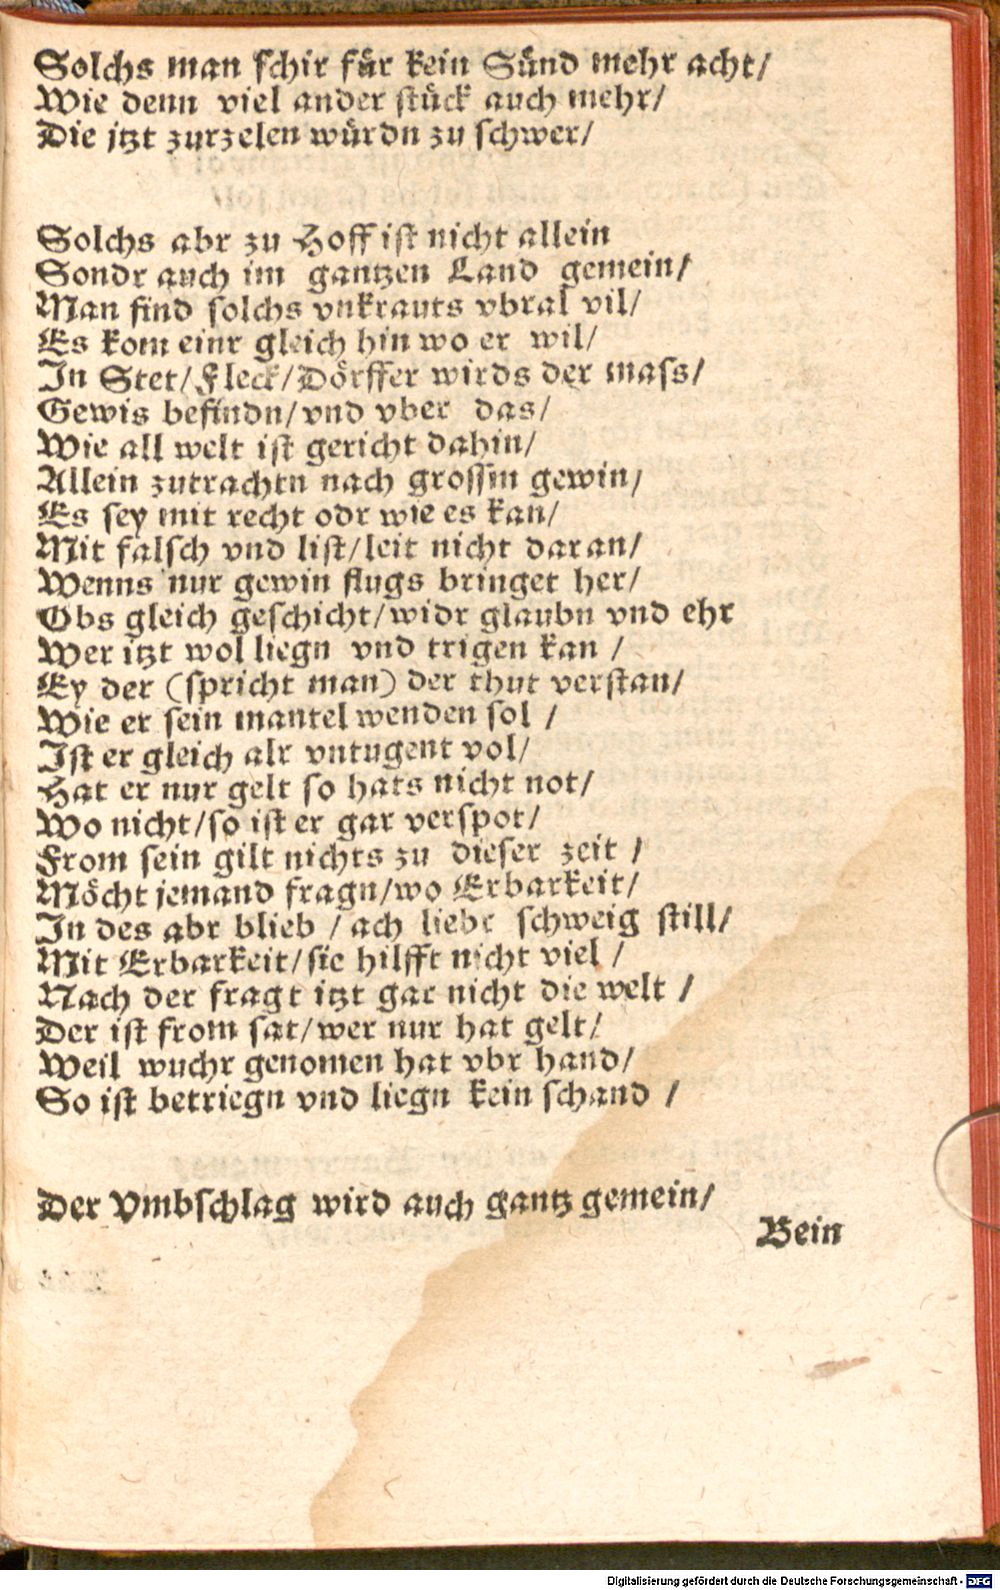 Solchs man schir für kein Sünd mehr acht/
Wie denn viel ander stück auch mehr/
Die jtzt zurzelen würdn zu schwer/
Solchs abr zu Hoff ist nicht allein
Sondr auch im gantzen Land gemein/
Man find solchs vnkrauts vbral vil/
Es kom einr gleich hin wo er wil/
In Stet/Fleck/Dörffer wirds der mass/
Gewis befindn/vnd vber das/
Wie all welt ist gericht dahin/
Allein zutrachtn nach grossm gewin/
Es sey mit recht odr wie es kan/
Mit falsch vnd list/leit nicht daran/
Wenns nur gewin flugs bringet her/
Obs gleich geschicht/widr glaubn vnd ehr
Wer itzt wol liegn vnd trigen kan /
Ey der (spricht man) der thut verstan/
Wie er sein mantel wenden sol /
Ist er gleich alr vntugent vol/
Hat er nur gelt so hats nicht not/
Wo nicht/so ist er gar verspot/
From sein gilt nichts zu dieser zeit /
Möcht jemand fragn/wo Erbarkeit/
In des abr blieb / ach liebr schweig still/
Mit Erbarkeit/sie hilfft nicht viel /
Nach der fragt itzt gar nicht die welt /
Der ist from sat/wer nur hat gelt/
Weil wuchr genomen hat vbr hand/
So ist betriegn vnd liegn kein schand /
Der Vmbschlag wird auch gantz gemein/
Bein
Digitalisierung gefördert durch die Deutsche Forschungsgemeinschaft - DFG